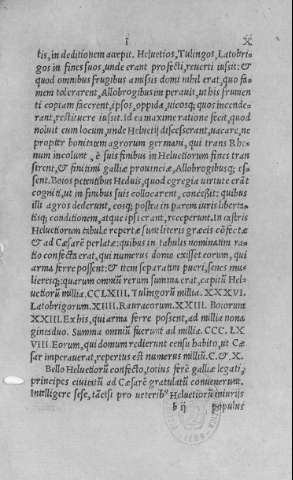 I X
tis, in deditionem accepit. Heluetios, Tulingos, Latobri-
gos in fines suos, unde erant profecti, reuerti iusit: &
quod omnibus frugibus amissis domi nihil erat, quo fa-
mem tolerarent, Allobrogibus imperauit, ut his frumen
ti copiam facerent, ipsos, oppida, uicosq; quos incende-
rant, restituere iusit. id ea maxime ratione fecit, quod
noluit eum locum, unde Heluetij discesserant, uacare, ne
propter bonitatem agrorum germani, qui trans Rhe-
num incolunt, è suis finibus in Heluetiorum fines tran
sirent, & finitimi galliæ prouinciæ, Allobrogibusq; es-
sent. Boios petentibus Heduis, quod egregia uirtute erāt
cogniti, ut in finibus suis collocarent, concessit: quibus
illi agros dederunt, eosq; postea in parem iuris liberta-
tisq; conditionem, atque ipsi erant, receperunt. In castris
Heluetiorum tabulæ repertæ sunt literis græcis cōfectæ
& ad Cæsarē perlatæ: quibus in tabulis nominatim ra
tio confecta erat, qui numerus domo exisset eorum, qui
arma ferre possent: & item separatim pueri, senes mu-
lieresq; quarum omniū rerum summa erat, capitū Hel-
uetiorū millia. CCLXIII. Tulingorū millia. XXXVI.
Latobrigorum. XIIII. Rauracorum. XXIII. Boiorum
XXXII. Ex his, qui arma ferre possent, ad millia nona
ginta duo. Summa omniū fuerunt ad millia. CCC. LX
VIII. Eorum, qui domum redierunt censu habito, ut Cæ
sar imperauerat, repertus est numerus milliū. C. & X.
Bello Heluetiorū confecto, totius ferè galliæ legati,
principes ciuitatū ad Cæsarē gratulatū conuenerunt.
Intelligere sese, tāetsi pro ueteribꝰ Heluetiorū iniurijs
b ij populus